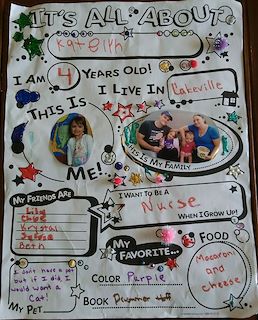 IT'S ALL ABOUT
I AM 4 YEARS OLD!
I LIVE IN Lakeville
THIS IS
ME!
THIS IS MY FAMILY
MY FRIENDS ARE
Lily
Chloe
Krystal
Beth
I WANT TO BE A
Nurse
WHEN I GROW UP!
MY FAVORITE...
FOOD
Macaroni
and
cheese
COLOR Purple
BOOK
I don't have a pet
but if I did, I
would want a
Cat!
MY PET